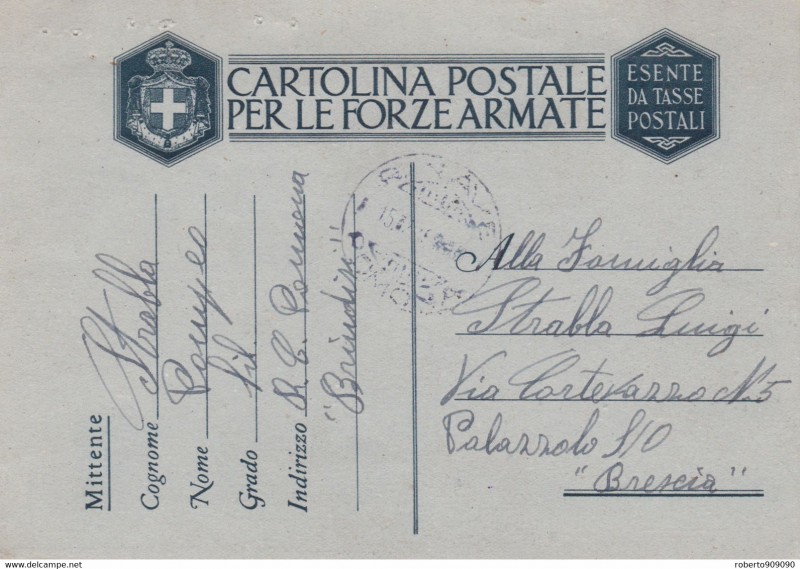 CARTOLINA POSTALE
PER LE FORZE ARMATE
ESENTE
DA TASSE
POSTALI
Mittente
Cognome Strabla
Nome Pompeo
Grado
Indirizzo R. C.
"Brindisi"
Alla Famiglia
Strabla Luigi
Via Cortevazzo N. 5
Palazzolo S/O
"Brescia"
www.delcampe.net
roberto909090